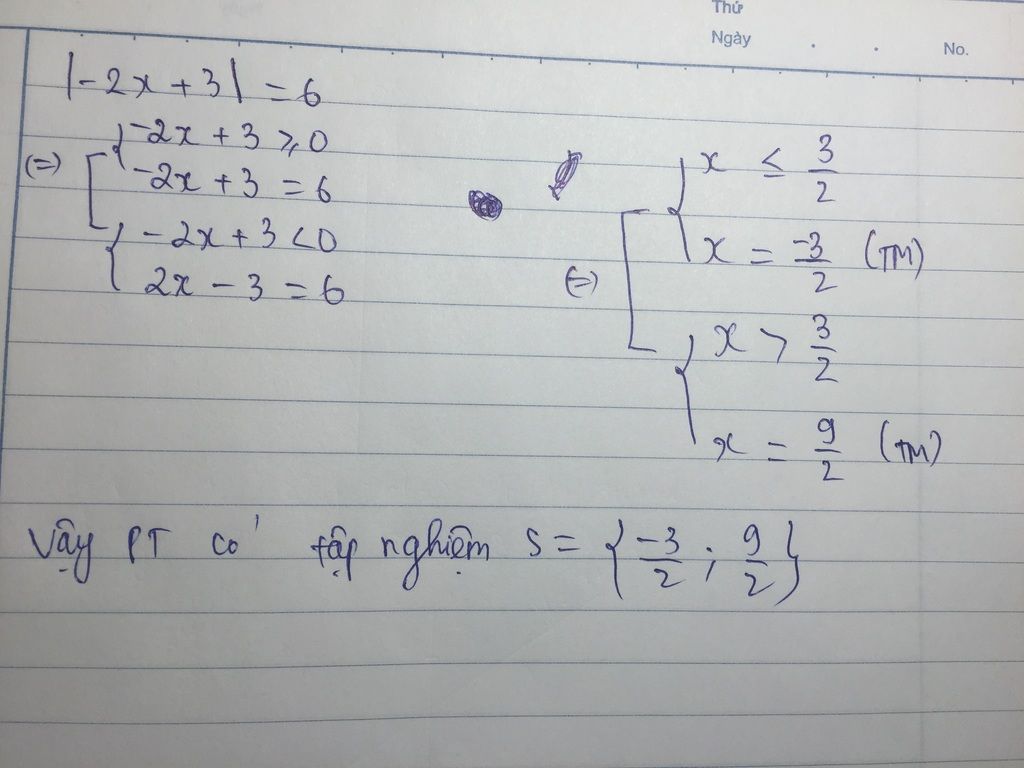 Thứ
Ngày . . No.
|-2x + 3| = 6
(=) [ { -2x + 3 ≥ 0
-2x + 3 = 6
{ -2x + 3 < 0
2x - 3 = 6
(=) [ { x ≤ 3/2
x = -3/2 (TM)
{ x > 3/2
x = 9/2 (TM)
Vậy PT có tập nghiệm S = { -3/2 ; 9/2 }